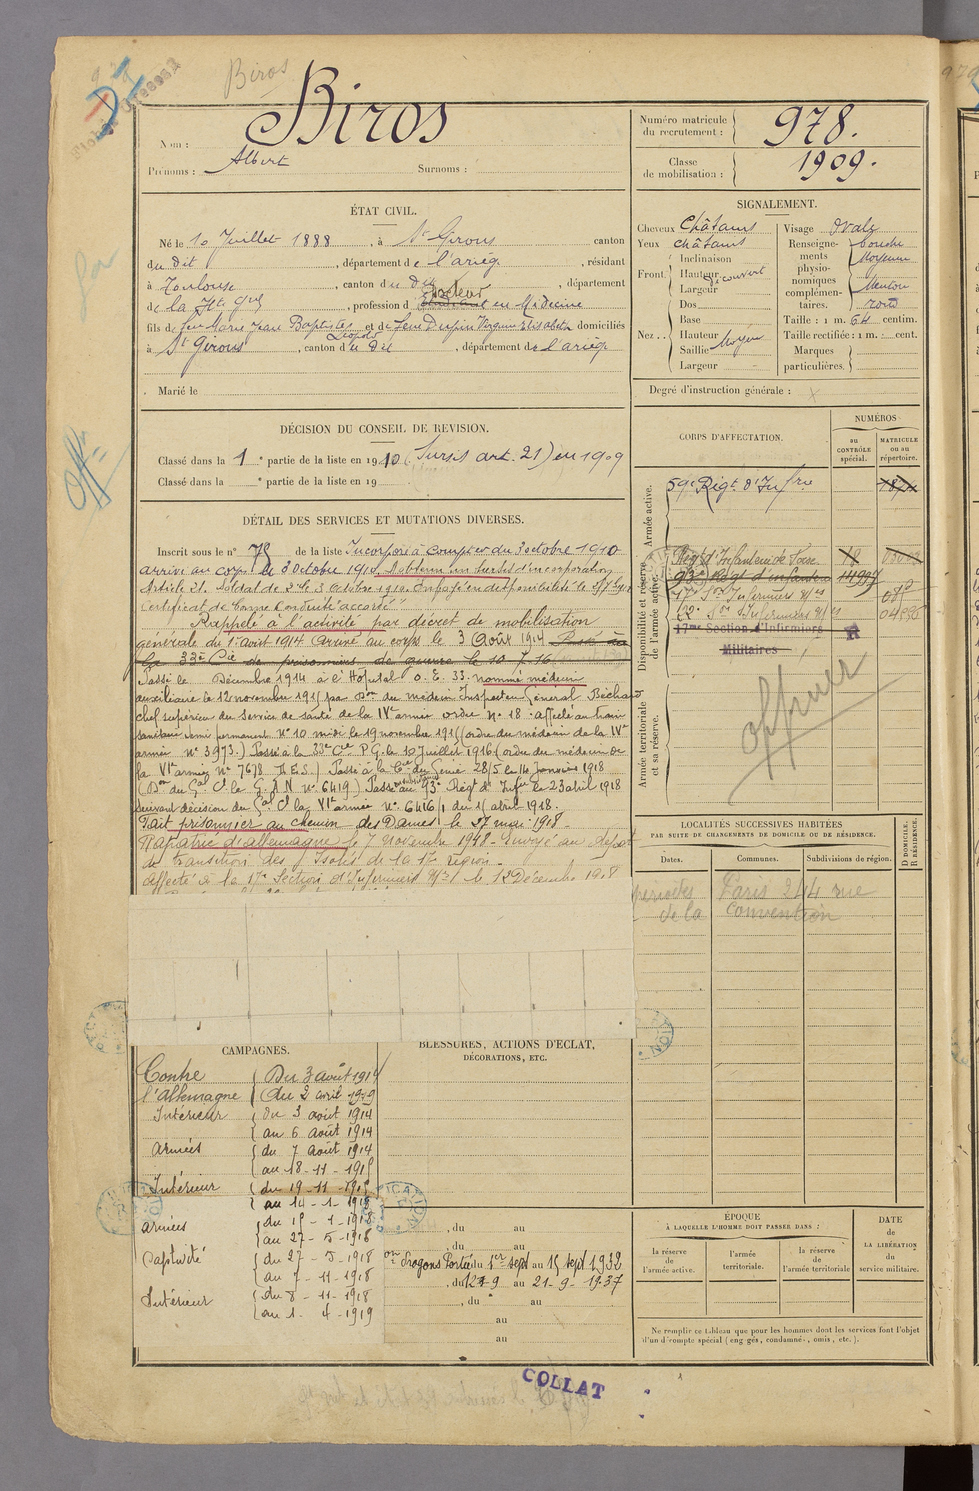 Biros
Nom : Biros
Prénoms : Albert Surnoms :
Numéro matricule du recrutement : 978.
Classe de mobilisation : 1909.
ÉTAT CIVIL.
Né le 10 Juillet 1888, à St Girons canton
du dit, département de l'ariège, résidant
à Toulouse, canton du dit, département
de la Hte Gne, profession d docteur en Médecine
fils de feu Marie Jean Baptiste Léopold et de feue Dupin Virginie Elisabeth domiciliés
à St Girons, canton du dit, département de l'ariège
Marié le
SIGNALEMENT.
Cheveux Châtains
Yeux châtains
Front. Inclinaison
Hauteur découvert
Largeur
Nez.. Dos
Base
Hauteur Moyen
Saillie
Largeur
Visage ovale
Renseignements physionomiques complémentaires. bouche Moyenne Menton rond
Taille : 1 m. 64 centim.
Taille rectifiée : 1 m. : cent.
Marques particulières.
Degré d'instruction générale :
DÉCISION DU CONSEIL DE REVISION.
Classé dans la 1e partie de la liste en 1910 (Sursis art. 21) en 1909
Classé dans la e partie de la liste en 19
CORPS D'AFFECTATION.
NUMÉROS
au CONTRÔLE spécial.
MATRICULE ou au répertoire.
Armée active.
59e Régt d'Infrie
Disponibilité et réserve de l'armée active.
Régt d'Infanterie de Foix. 18
93e Régt d'infanterie
17e Son Infirmiers Mres
22e Son d'Infirmiers Mres
17me Section d'Infirmiers R
Militaires
Armée territoriale et sa réserve.
officier
DÉTAIL DES SERVICES ET MUTATIONS DIVERSES.
Inscrit sous le n° 75 de la liste Incorporé à compter du 3 octobre 1910
arrivé au corps le 3 octobre 1910. A obtenu un sursis d'incorporation
Article 21. Soldat de 2e cl. 3 Octobre 1910. Envoyé en disponibilité le
Certificat de bonne Conduite "accordé"
Rappelé à l'activité par décret de mobilisation
générale du 1er août 1914 Arrivé au corps le 3 Août 1914 Passé à
la 33e Cie de prisonniers de guerre le 10-7-16
Passé le Décembre 1914 à l'Hopital O. E. 33. nommé médecin
auxiliaire le 12 novembre 1915 par Don du médecin Inspecteur Général Béchard
chef supérieur du service de santé de la IVe armée ordre N° 18. affecté au train
sanitaire semi permanent N° 10 midi le 19 novembre 1915 (ordre du médecin de la IVe
armée N° 3973.) Passé à la 33e Cie P.G. le 10 Juillet 1916 (ordre du médecin de
la VIe armée N° 7678 Passé à la Cie du Génie 28/5 le 14 Janvier 1918
(Don du Gal Ct le G. A N N° 6419) Passé au 93e Régt d' Infie le 23 avril 1918
suivant décision du Gal Ct la VIe armée N° 6416/1 du 15 abril 1918.
Fait prisonnier au chemin des Dames le 27 mai 1918 -
Rapatrié d'allemagne le 7 Novembre 1918 - Envoyé au dépôt
de transition des Isolés de la 17e Région -
affecté à la 17e Section d'Infirmiers Mres le 12 Décembre 1918
LOCALITÉS SUCCESSIVES HABITÉES
PAR SUITE DE CHANGEMENTS DE DOMICILE OU DE RÉSIDENCE.
Dates. Communes. Subdivisions de région. D DOMICILE. R RÉSIDENCE.
Paris 244 rue
de la Convention
CAMPAGNES.
Contre l'allemagne { Du 3 août 1914
{ au 2 avril 1919
Intérieur { du 3 août 1914
{ au 6 août 1914
Armées { du 7 août 1914
{ au 18-11-1915
Intérieur { du 19-11-1915
{ au 14-1-1918
armées { du 15-1-1918
{ au 27-5-1918
Captivité { du 27-5-1918
{ au 7-11-1918
Intérieur { du 8-11-1918
{ au 1-4-1919
BLESSURES, ACTIONS D'ÉCLAT,
DÉCORATIONS, ETC.
, du au
, du au
on Dragons Portés du 1er sept au 15 sept 1932
, du 12-9 au 21-9-1937
, du au
au
au
ÉPOQUE
À LAQUELLE L'HOMME DOIT PASSER DANS :
la réserve de l'armée active.
l'armée territoriale.
la réserve de l'armée territoriale
DATE
de
LA LIBÉRATION
du
service militaire.
Ne remplir ce tableau que pour les hommes dont les services font l'objet
d'un décompte spécial (engagés, condamnés, omis, etc.).
COLLAT